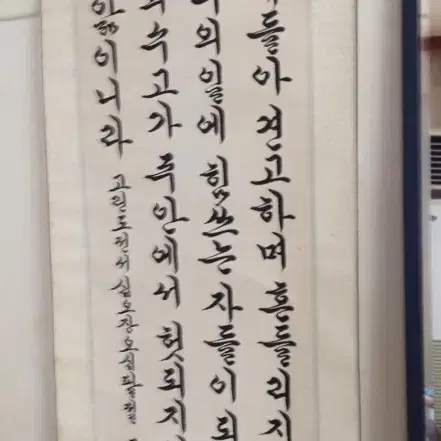 들아 견고하며 흔들리지
의 일에 힘쓰는 자들이 되
수고가 주 안에서 헛되지
앎이니라
고린도전서 십오장 오십팔절